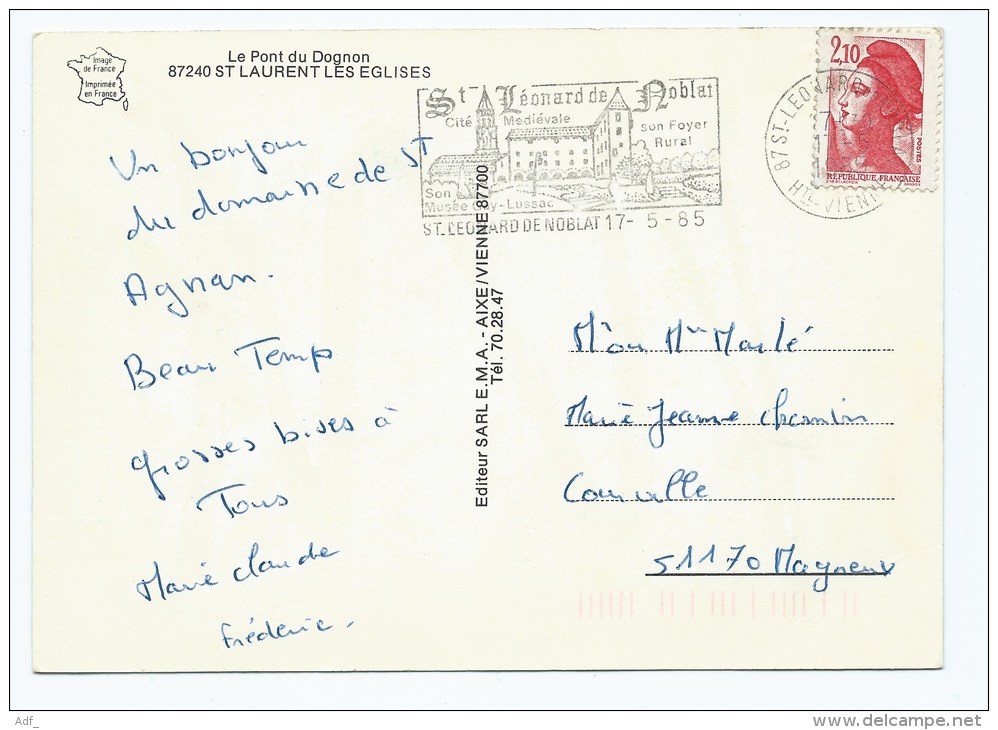 Image
de France
Imprimée
en France
Le Pont du Dognon
87240 ST LAURENT LES EGLISES
St Léonard de Noblat
Cité Mediévale
son Foyer
Rural
Son
Musée Gay-Lussac
ST. LEONARD DE NOBLAT 17- 5 -85
87 ST-LEONARD
HTE-VIENNE
2,10
POSTES
RÉPUBLIQUE FRANÇAISE
Un bonjour
du domaine de St
Agnan.
Beau Temp
grosses bises à
Tous
Marie Claude
Frédéric.
Editeur SARL E.M.A. - AIXE/VIENNE 87700
Tél. 70.28.47
Marie Jeanne
Courville
51170 Magneux
Adf_
delcampe.net